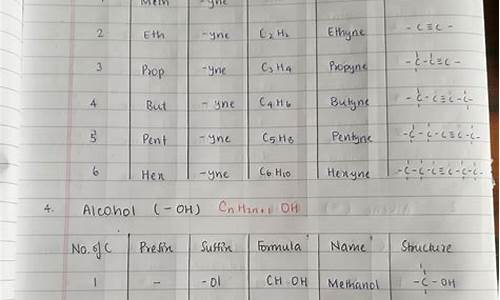 1 Meth -yne
2 Eth -yne C2H2 Ethyne -C≡C-
3 Prop -yne C3H4 Propyne -C-C≡C-
4 But -yne C4H6 Butyne -C-C≡C-C-
5 Pent -yne C5H8 Pentyne -C-C-C≡C-C-
6 Hex -yne C6H10 Hexyne -C-C-C≡C-C-C-
4. Alcohol (-OH) CnH2n+1 OH
No. of C Prefix Suffix Formula Name Structure
1 - -Ol CH OH Methanol -C-OH